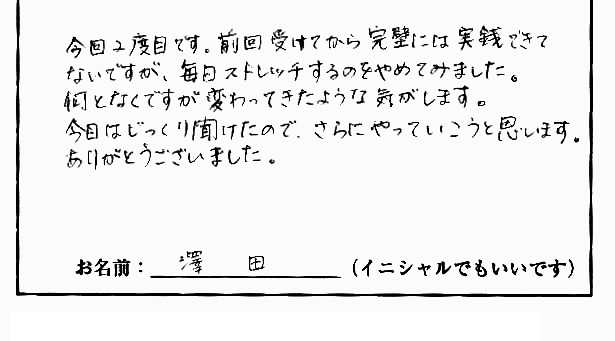 今回2度目です。前回受けてから完璧には実銭できて
ないですが、毎日ストレッチするのをやめてみました。
何となくですが変わってきたような気がします。
今日はじっくり聞けたので、さらにやっていこうと思います。
ありがとうございました。
お名前：澤田（イニシャルでもいいです）